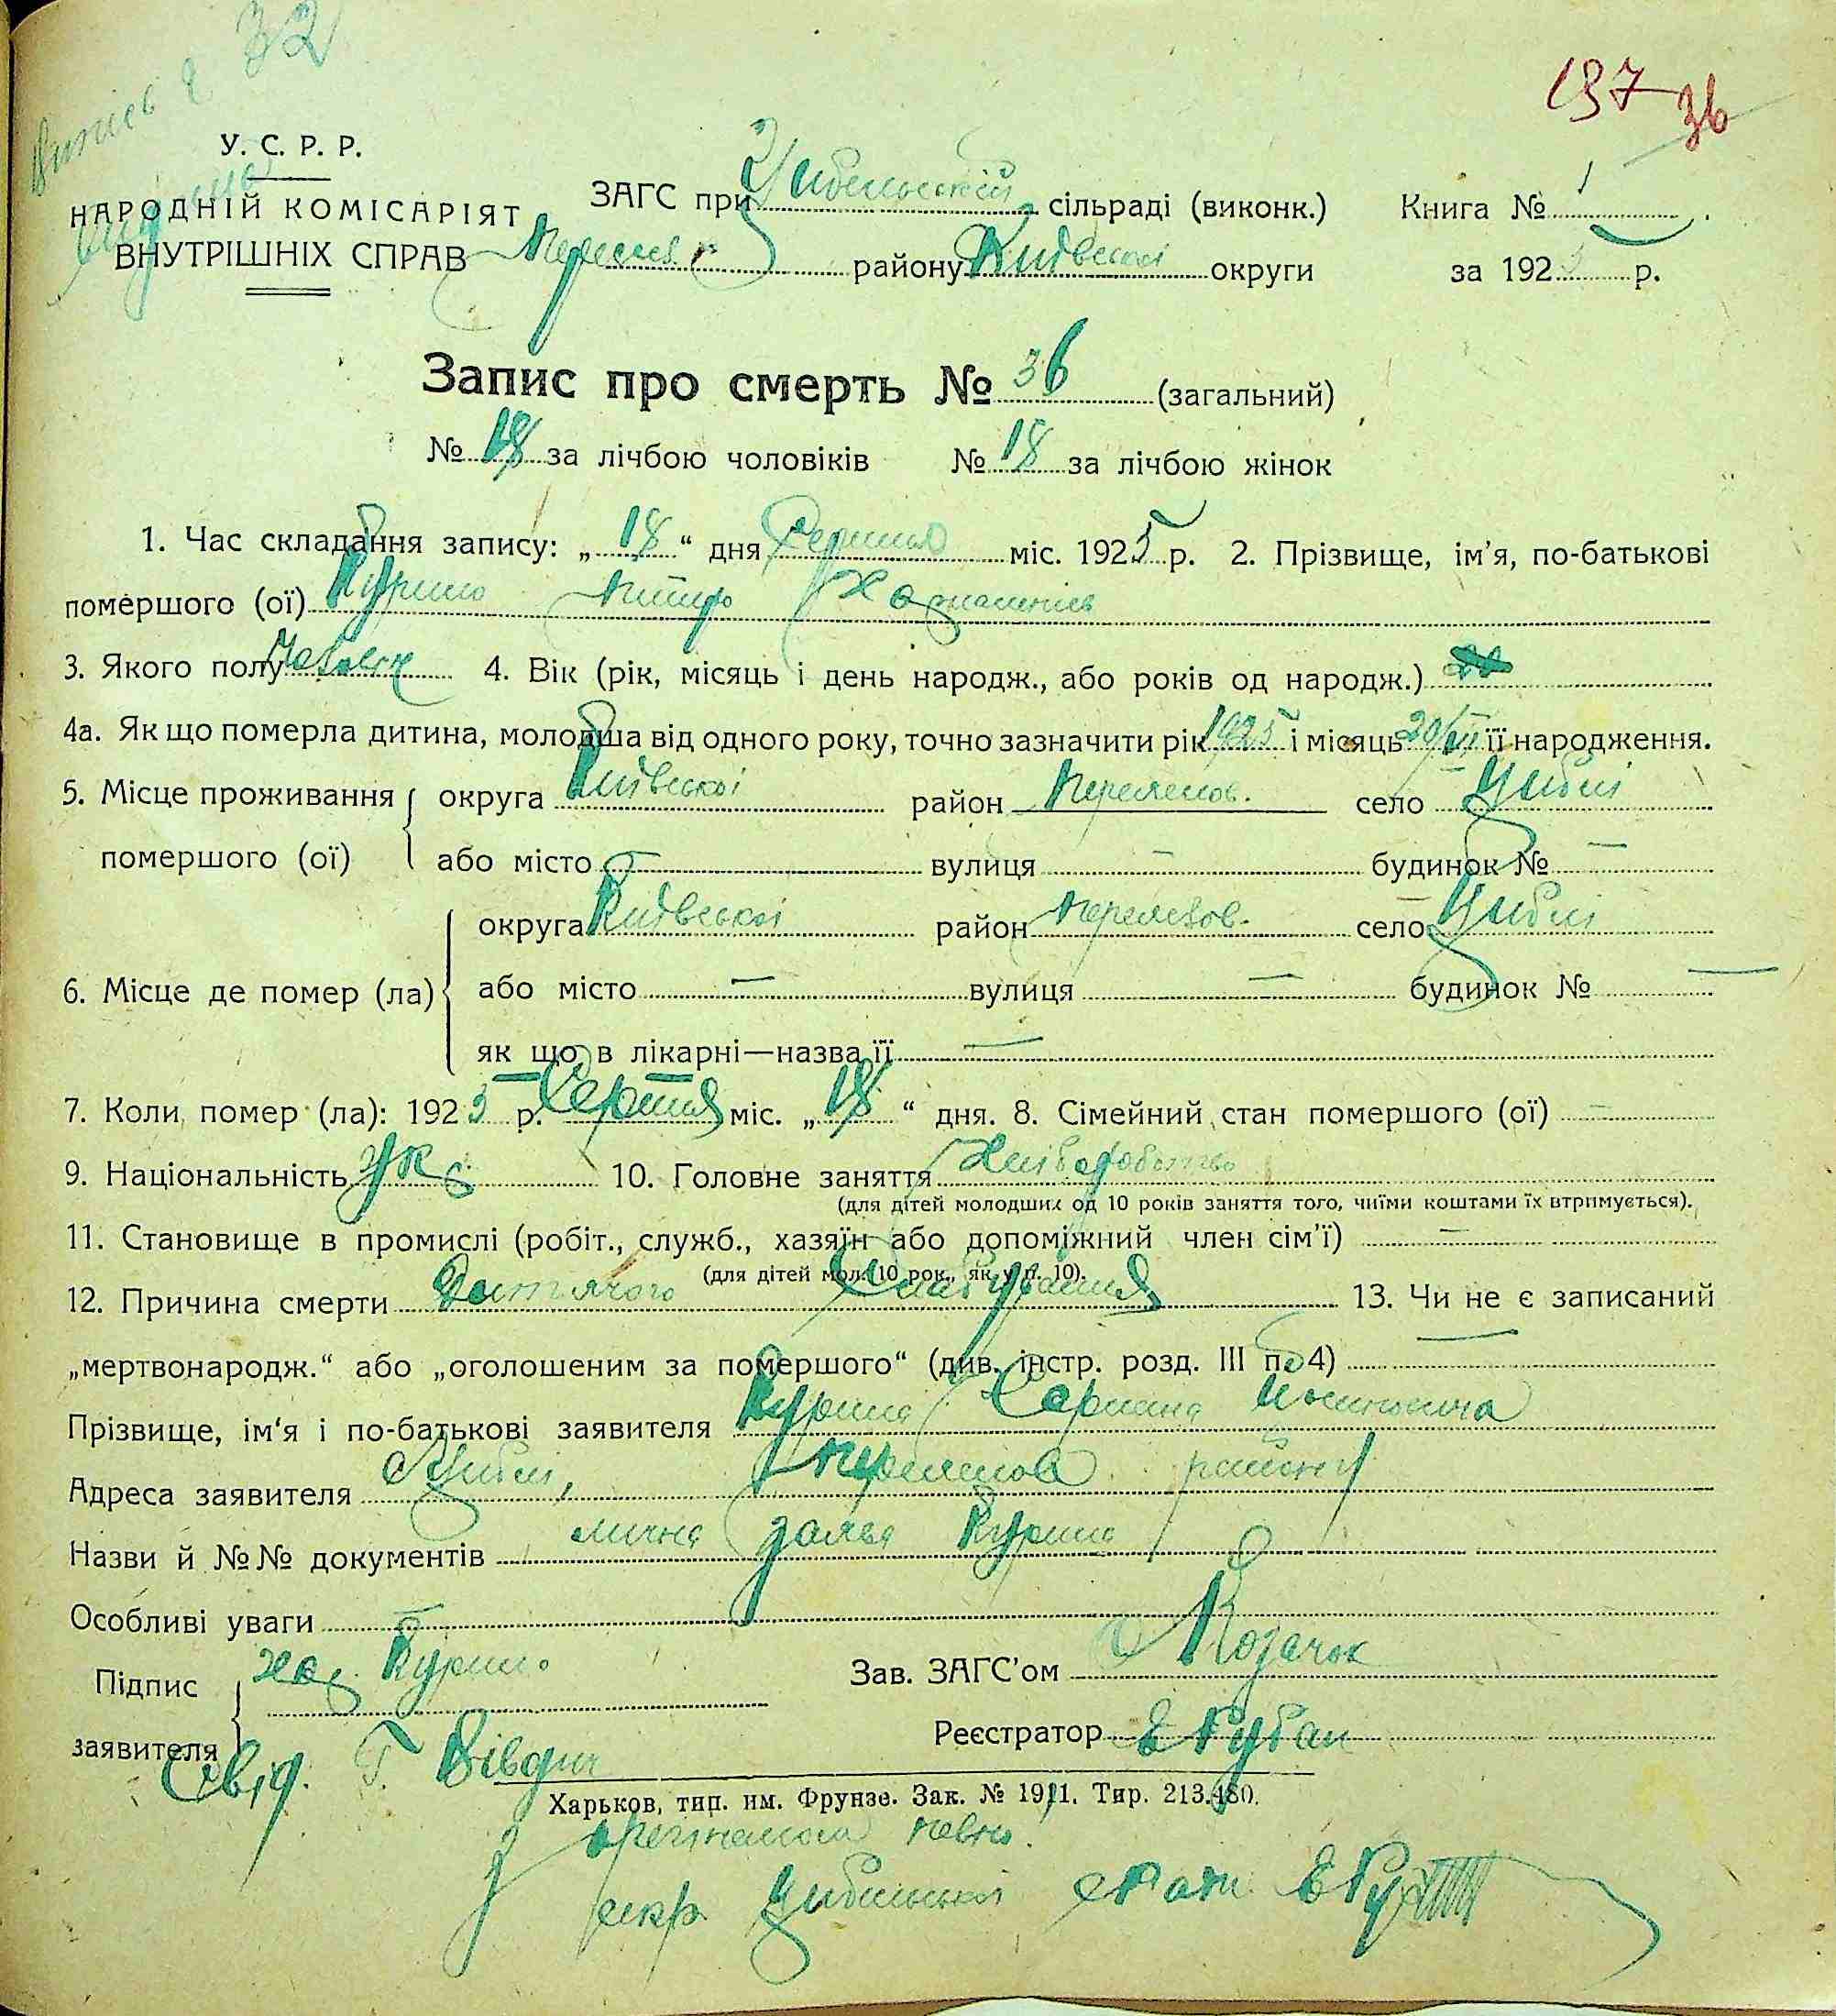 32
137 36
У. С. Р. Р.
НАРОДНІЙ КОМІСАРІЯТ
ВНУТРІШНІХ СПРАВ
ЗАГС при Цибельській сільраді (виконк.) Книга № 1
району Київської округи за 1925 р.
Запис про смерть № 36 (загальний)
№ 18 за лічбою чоловіків № 18 за лічбою жінок
1. Час складання запису: „18“ дня Серпня міс. 1925 р. 2. Прізвище, ім’я, по-батькові
помершого (ої) Курило
3. Якого полу 4. Вік (рік, місяць і день народж., або років од народж.)
4а. Як що померла дитина, молодша від одного року, точно зазначити рік 1925 і місяць її народження.
5. Місце проживання помершого (ої) округа Київської район Переяслов. село Циблі
або місто — вулиця — будинок № —
6. Місце де помер (ла) округа Київської район село Циблі
або місто — вулиця — будинок № —
як що в лікарні—назва її —
7. Коли помер (ла): 1925 р. Серпня міс. „18“ дня. 8. Сімейний стан помершого (ої) —
9. Національність Укр 10. Головне заняття Хліборобство
(для дітей молодших од 10 років заняття того, чиїми коштами їх втримується).
11. Становище в промислі (робіт., служб., хазяїн або допоміжний член сім’ї) —
(для дітей мол. 10 рок., як у п. 10).
12. Причина смерти 13. Чи не є записаний
„мертвонародж.“ або „оголошеним за помершого“ (див. інстр. розд. III п. 4) —
Прізвище, ім‘я і по-батькові заявителя Курила
Адреса заявителя Циблі, району
Назви й №№ документів лична заява Курила
Особливі уваги —
Підпис заявителя Курило Зав. ЗАГС’ом Козачок
Свід. Г. Вівдич Реєстратор Е Рубан
Харьков, тип. им. Фрунзе. Зак. № 1911. Тир. 213.480.
З оригіналом певно:
секр Цибельської